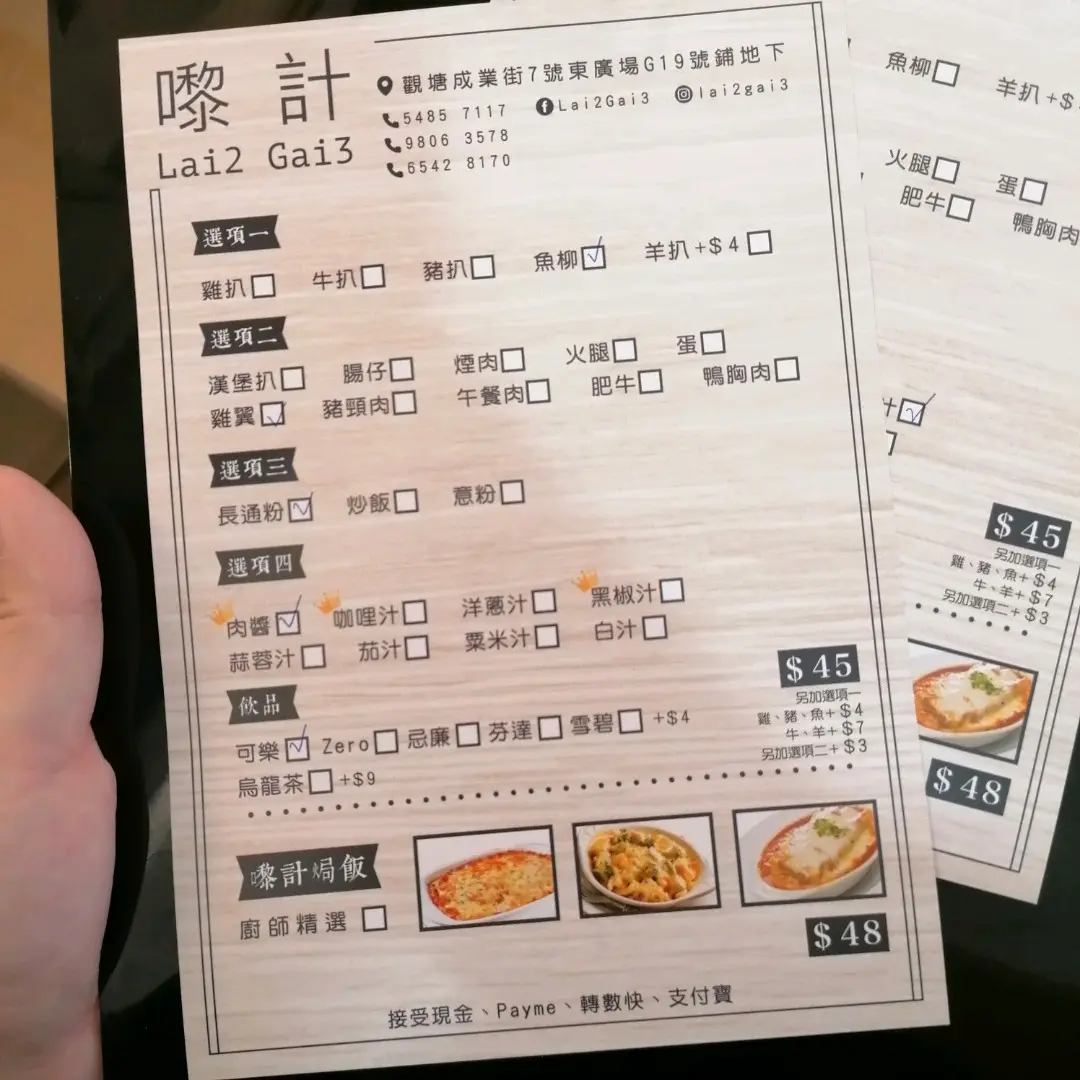 嚟計
Lai2 Gai3
觀塘成業街7號東廣場G19號鋪地下
5485 7117 Lai2Gai3 lai2gai3
9806 3578
6542 8170
選項一
雞扒 牛扒 豬扒 魚柳 羊扒+$4
選項二
漢堡扒 腸仔 煙肉 火腿 蛋
雞翼 豬頸肉 午餐肉 肥牛 鴨胸肉
選項三
長通粉 炒飯 意粉
選項四
肉醬 咖哩汁 洋蔥汁 黑椒汁
蒜蓉汁 茄汁 粟米汁 白汁
飲品
可樂 Zero 忌廉 芬達 雪碧 +$4
烏龍茶 +$9
$45
另加選項一
雞、豬、魚+$4
牛、羊+$7
另加選項二+$3
嚟計焗飯
廚師精選
$48
接受現金、Payme、轉數快、支付寶
魚柳 羊扒+$
火腿 蛋
肥牛 鴨胸肉
汁
$45
另加選項一
雞、豬、魚+$4
牛、羊+$7
另加選項二+$3
$48